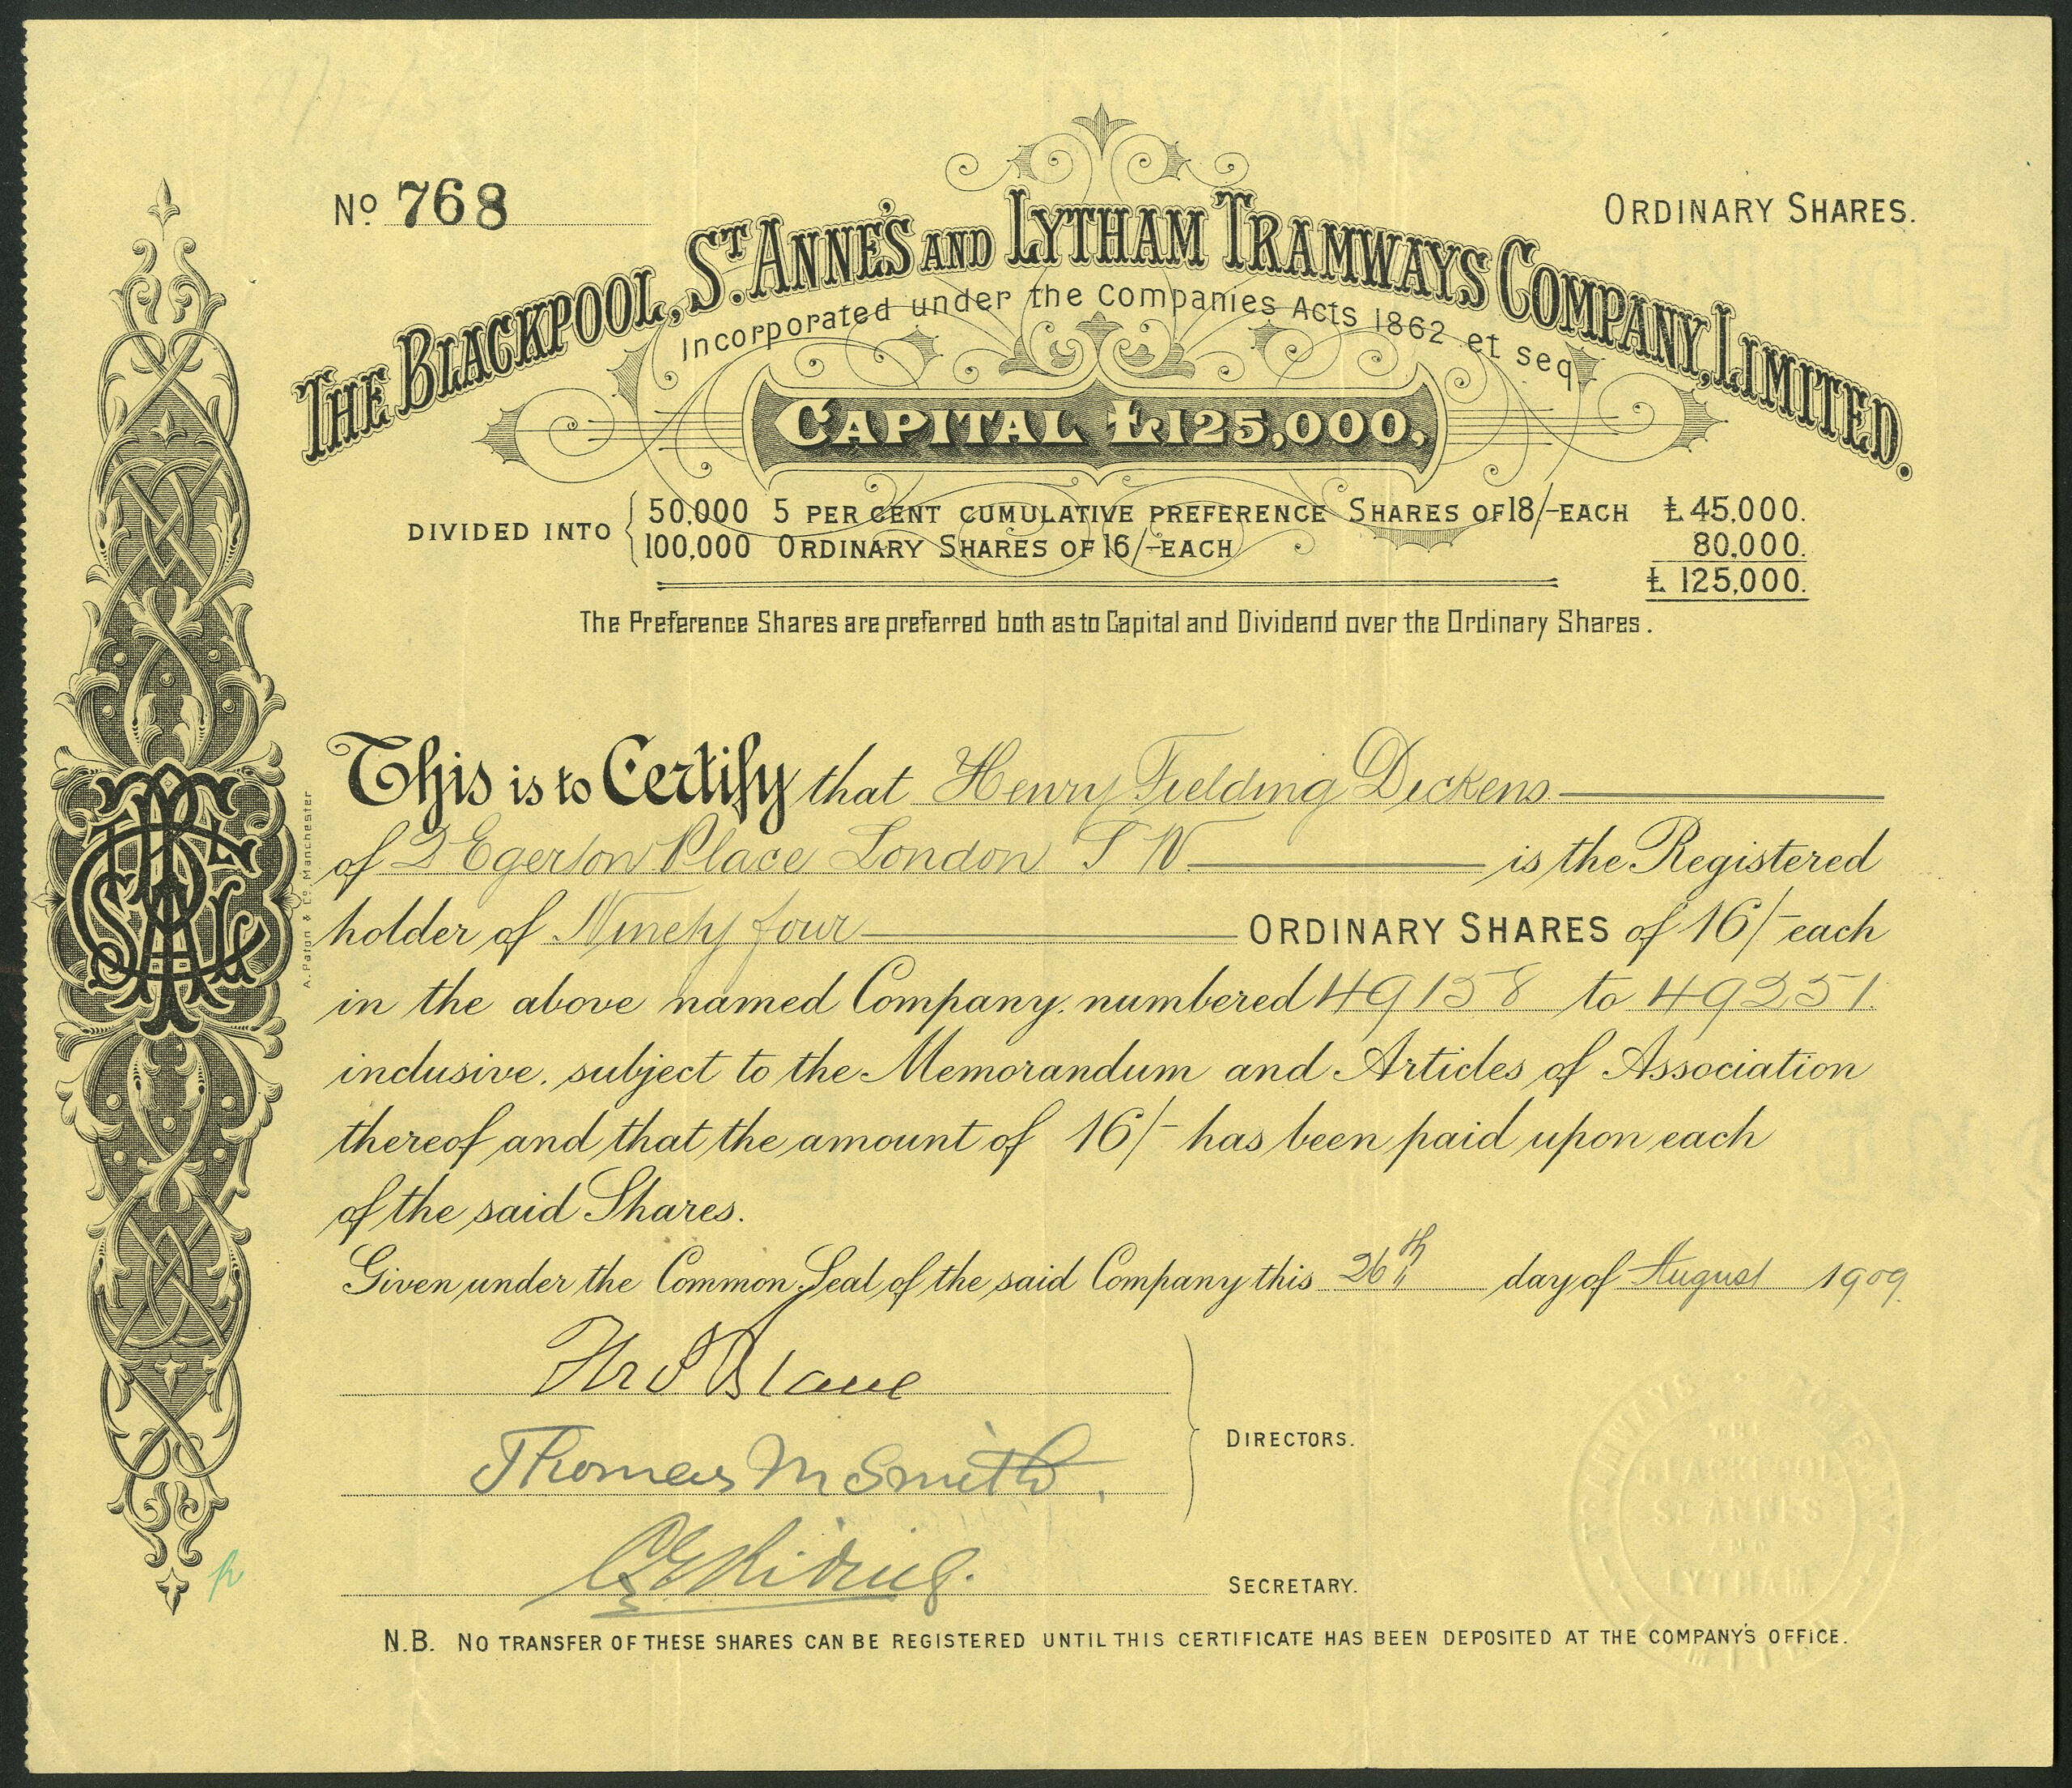 No. 768
ORDINARY SHARES.
THE BLACKPOOL, ST. ANNE'S AND LYTHAM TRAMWAYS COMPANY, LIMITED.
Incorporated under the Companies Acts 1862 et seq
CAPITAL £125,000.
DIVIDED INTO
50,000 5 PER CENT CUMULATIVE PREFERENCE SHARES OF 18/- EACH £45,000.
100,000 ORDINARY SHARES OF 16/- EACH 80,000.
£ 125,000.
The Preference Shares are preferred both as to Capital and Dividend over the Ordinary Shares.
This is to Certify that Henry Fielding Dickens
of 2 Egerton Place London S W. is the Registered
holder of Ninety four ORDINARY SHARES of 16/- each
in the above named Company, numbered 49158 to 49251.
inclusive, subject to the Memorandum and Articles of Association
thereof and that the amount of 16/- has been paid upon each
of the said Shares.
Given under the Common Seal of the said Company this 26th day of August 1909
Thomas M Smith.
DIRECTORS.
SECRETARY.
N.B. NO TRANSFER OF THESE SHARES CAN BE REGISTERED UNTIL THIS CERTIFICATE HAS BEEN DEPOSITED AT THE COMPANY'S OFFICE.
A. Parian & Co. Manchester
TRAMWAYS COMPANY LIMITED
THE
BLACKPOOL
ST ANNES
AND
LYTHAM